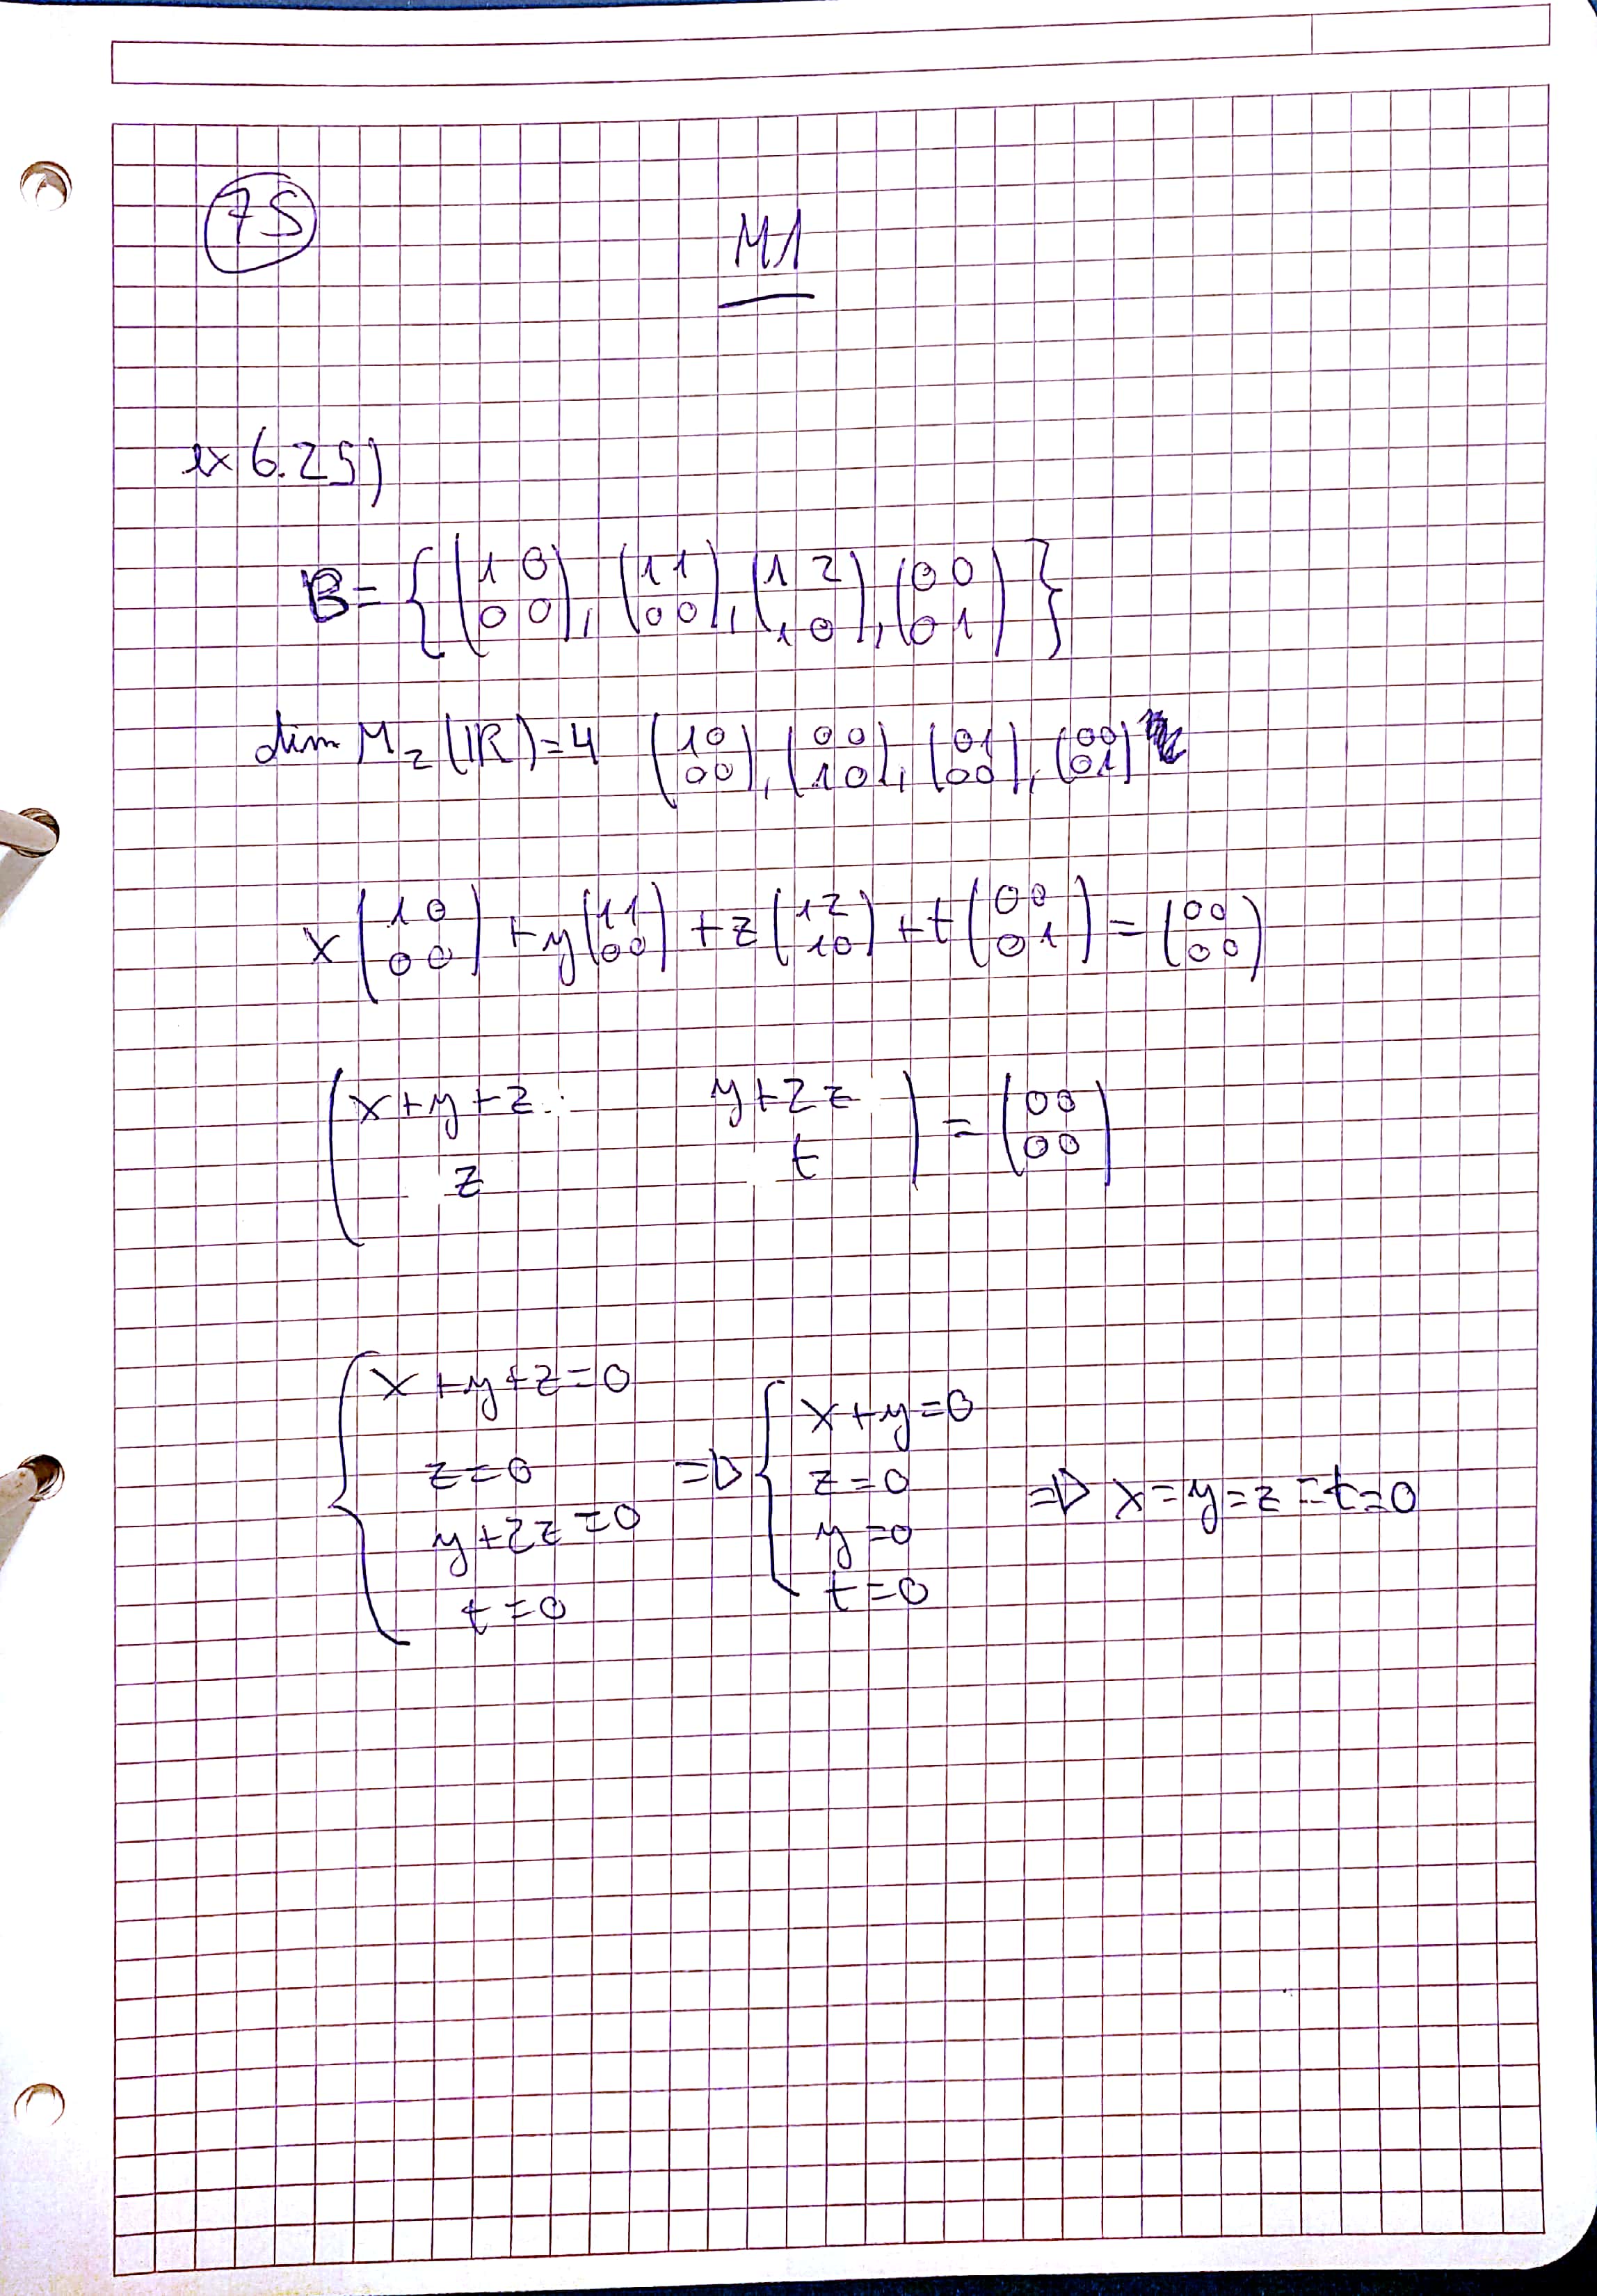 75
M1
ex 6.25)
B = { (1 0 / 0 0), (1 1 / 0 0), (1 2 / 1 0), (0 0 / 0 1) }
dim M₂(ℝ)=4 (1 0 / 0 0), (0 0 / 1 0), (0 1 / 0 0), (0 0 / 0 1)
x (1 0 / 0 0) + y (1 1 / 0 0) + z (1 2 / 1 0) + t (0 0 / 0 1) = (0 0 / 0 0)
(x+y+z y+2z / z t) = (0 0 / 0 0)
{ x+y+z=0 / z=0 / y+2z=0 / t=0 => { x+y=0 / z=0 / y=0 / t=0 => x=y=z=t=0